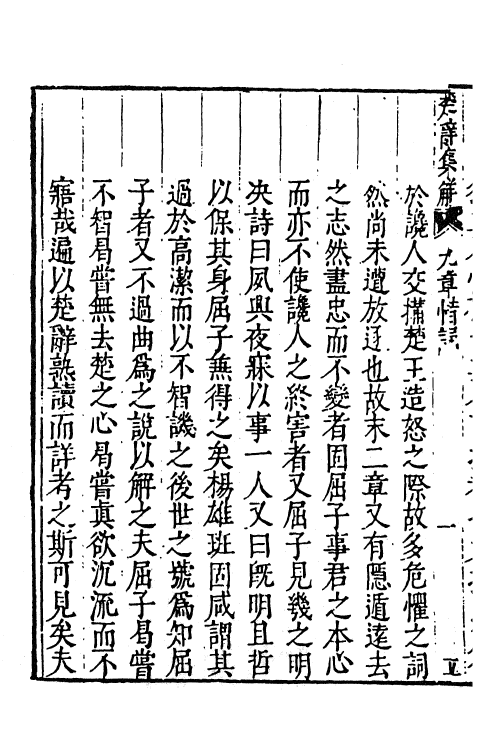 楚辭集解
九章惜誦
一
五
於讒人交搆楚王造怒之際故多危懼之詞
然尚未遭放逐也故末二章又有隱遁遠去
之志然盡忠而不變者固屈子事君之本心
而亦不使讒人之終害者又屈子見幾之明
决詩曰夙與夜寐以事一人又曰既明且哲
以保其身屈子兼得之矣楊雄班固咸謂其
過於高潔而以不智譏之後世之號為知屈
子者又不過曲為之說以解之夫屈子曷嘗
不智曷嘗無去楚之心曷嘗真欲沉流而不
寤哉遍以楚辭熟讀而詳考之斯可見矣夫